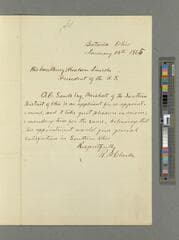 Batavia Ohio
January 26th 1865
His Excellency Abraham Lincoln
President of the U.S.
Esq. Marshal of the Southern
District of Ohio is an applicant for re-appoint-
ment, and I take great pleasure in recom-
mending him for the same, believing that
his appointment would give general
satisfaction in Southern Ohio
Respectfully